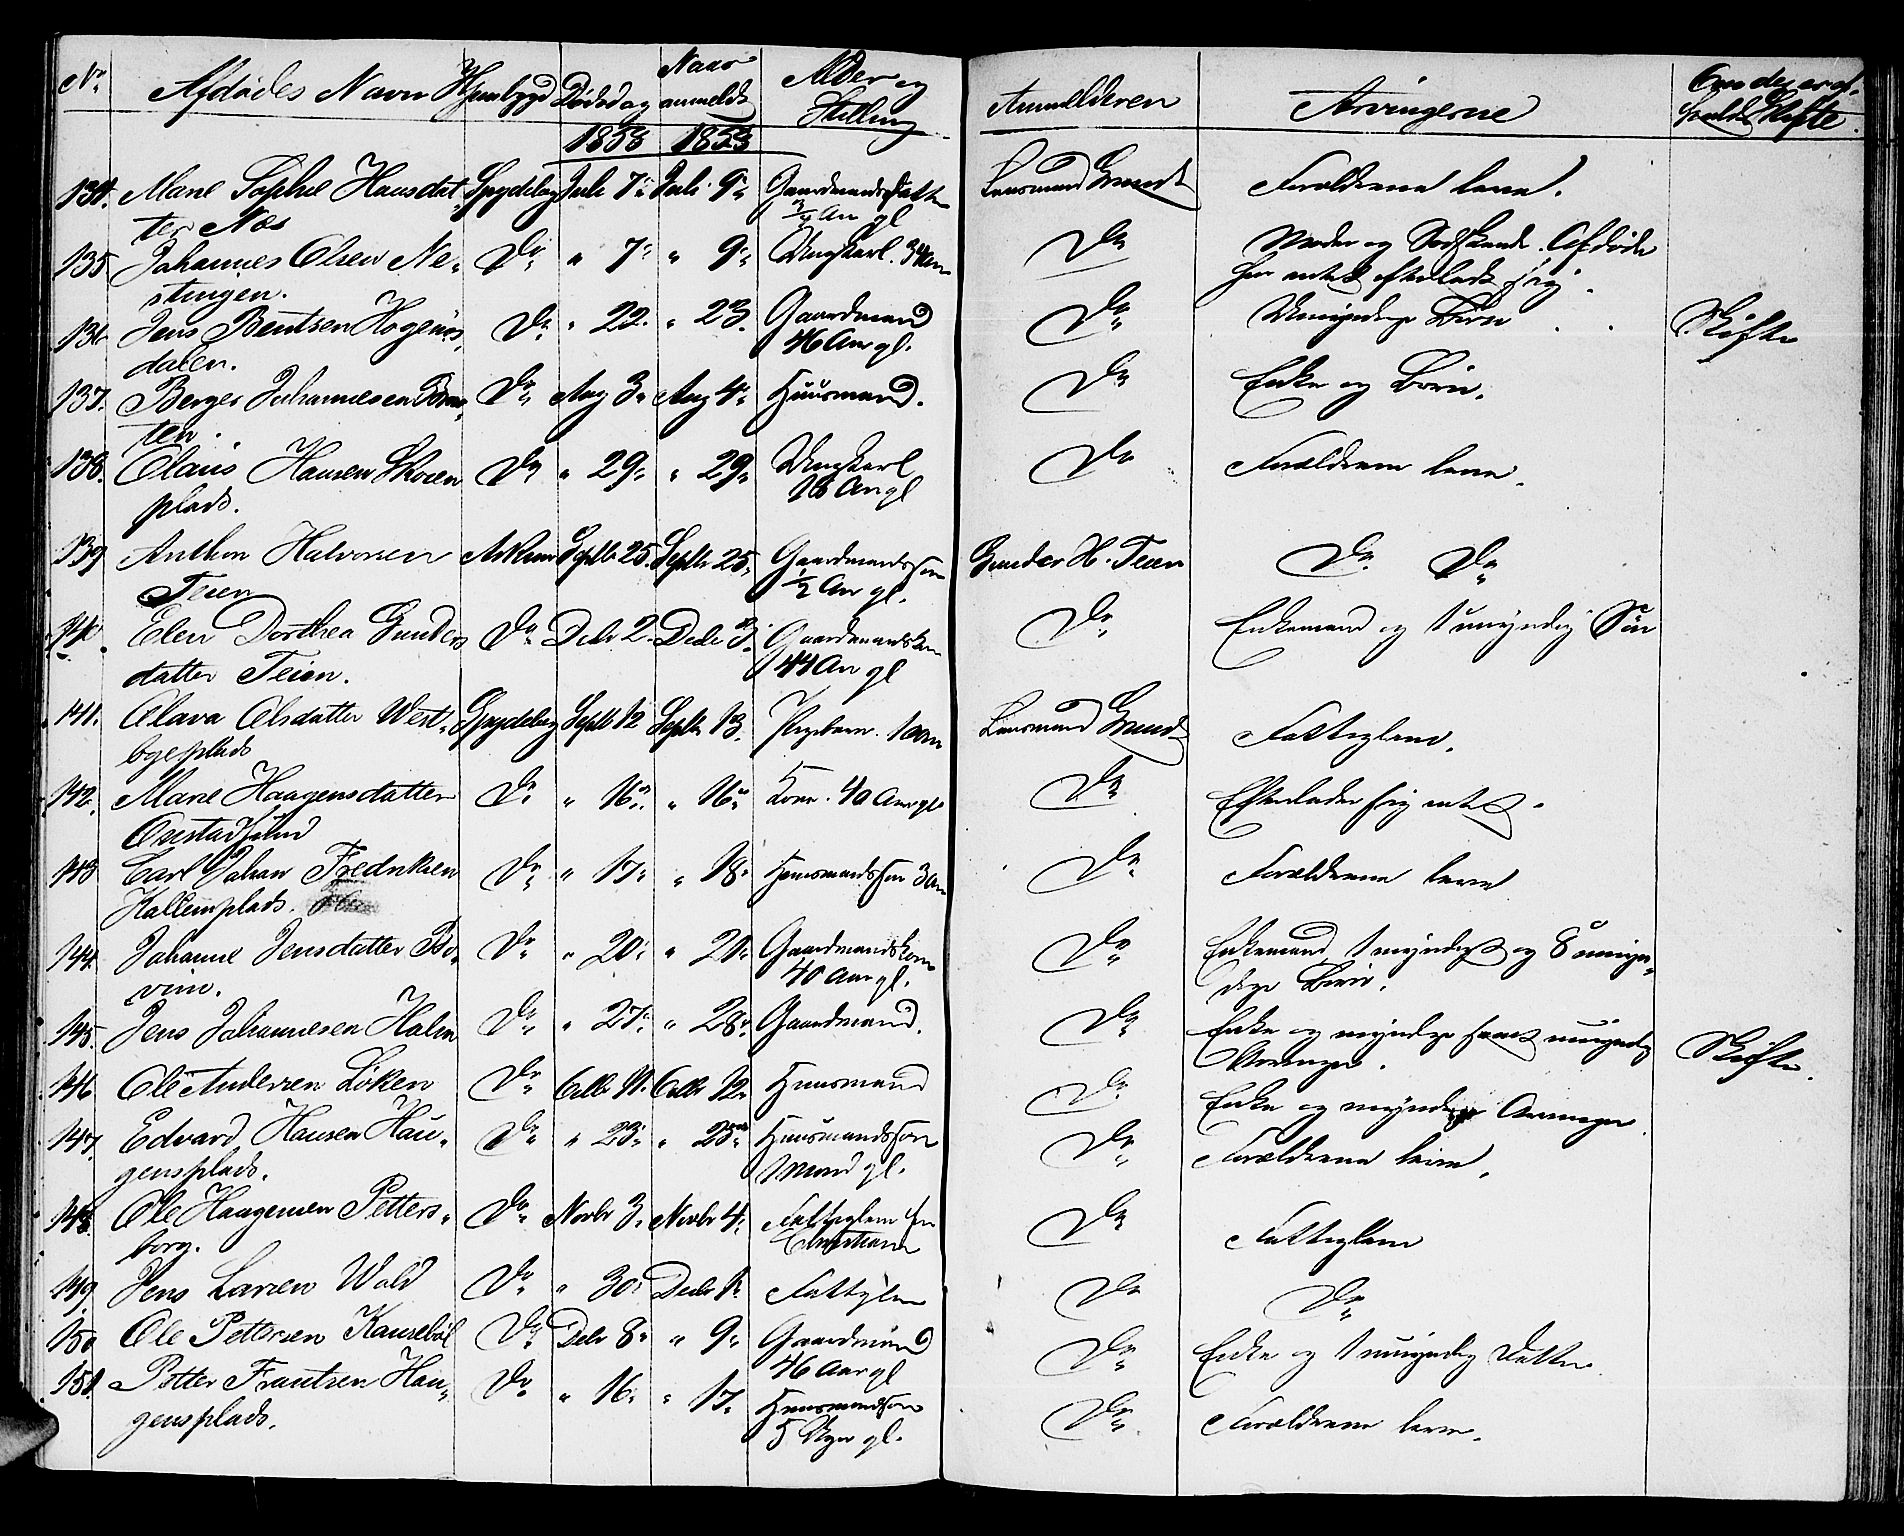 No. Afdødes Navn Hjembygd Dødsdag Naar anmeldt Alder og Stilling Anmelderen Arvingerne Om der er holdt Skifte.
1853 1853
134. Marie Sophie Hansdat- Spydeberg Juli 7. Juli 9. Gaardmandsdatter Lensmand Grundt Forældrene leve.
ter Næs 3/4 Aar gl
135. Johannes Olsen Ne- Do „ 7. „ 9. Ungkarl. 34 Aar Do Moder og Sødskende. Afdøde
stingen. har intet efterladt sig.
136. Jens Bentsen Do „ 22. „ 23. Gaardmand Do Umyndige Børn Skifte
dalen. 46 Aar gl.
137. Berger Johannesen Do Aug 3. Aug 4. Huusmand. Do Enke og Børn.
ten.
138. Olaus Hansen Skoren Do „ 29. „ 29. Ungkarl Do Forældrene leve.
plads. 18 Aar gl
139 Anthon Halvorsen Askim Septr 25. Septr 25. Gaardmandssøn Gunder H. Teien Do Do
Teien 1/2 Aar gl.
140. Elen Dorthea Gunders Do Decbr 2. Decbr 3. Gaardmandskone Do Enkemand og 1 umyndig Søn
datter Teien. 44 Aar gl
141. Olava Olsdatter West- Spydeberg Septr 12 Septr 13. Plejebarn. 1 Aar Lensmand Grundt Fattiglem.
byeplads
142. Marie Haagensdatter Do „ 16. „ 16. Kone. 40 Aar gl Do Efterlader sig intet.
143 Carl Johan Fredriksen Do „ 17. „ 18. Huusmandssøn 3 Aar Do Forældrene leve
Hallemplads.
144. Johanne Jensdatter Bo- Do „ 20. „ 20. Gaardmandskone Do Enkemand, 1 myndigt og 8 umyn-
vim. 40 Aar gl. dige Børn.
145. Jens Johannesen Holm Do „ 27. „ 28. Gaardmand. Do Enke og myndige samt umyndig Skifte.
Arvinger.
146 Ole Andersen Løken Do Octbr 11. Octbr 12. Huusmand Do Enke og myndige Arvinger.
147. Edvard Hansen Hau- Do „ 23. „ 25. Huusmandssøn Do Forældrene leve.
gensplads. 1 Maand gl.
148. Ole Haagensen Petters- Do Novbr 3. Novbr 4. Fattiglem fra Do Fattiglem
borg. Christiania
149. Jens Larsen Wold Do „ 30. Decbr 1. Fattiglem Do Do
150 Ole Pettersen Do Decbr 8. „ 9. Gaardmand Do Enke og 1 umyndig Datter.
46 Aar gl
151. Petter Frantsen Hau- Do „ 16. „ 17. Huusmandssøn Do Forældrene leve.
gensplads. 5 Uger gl.